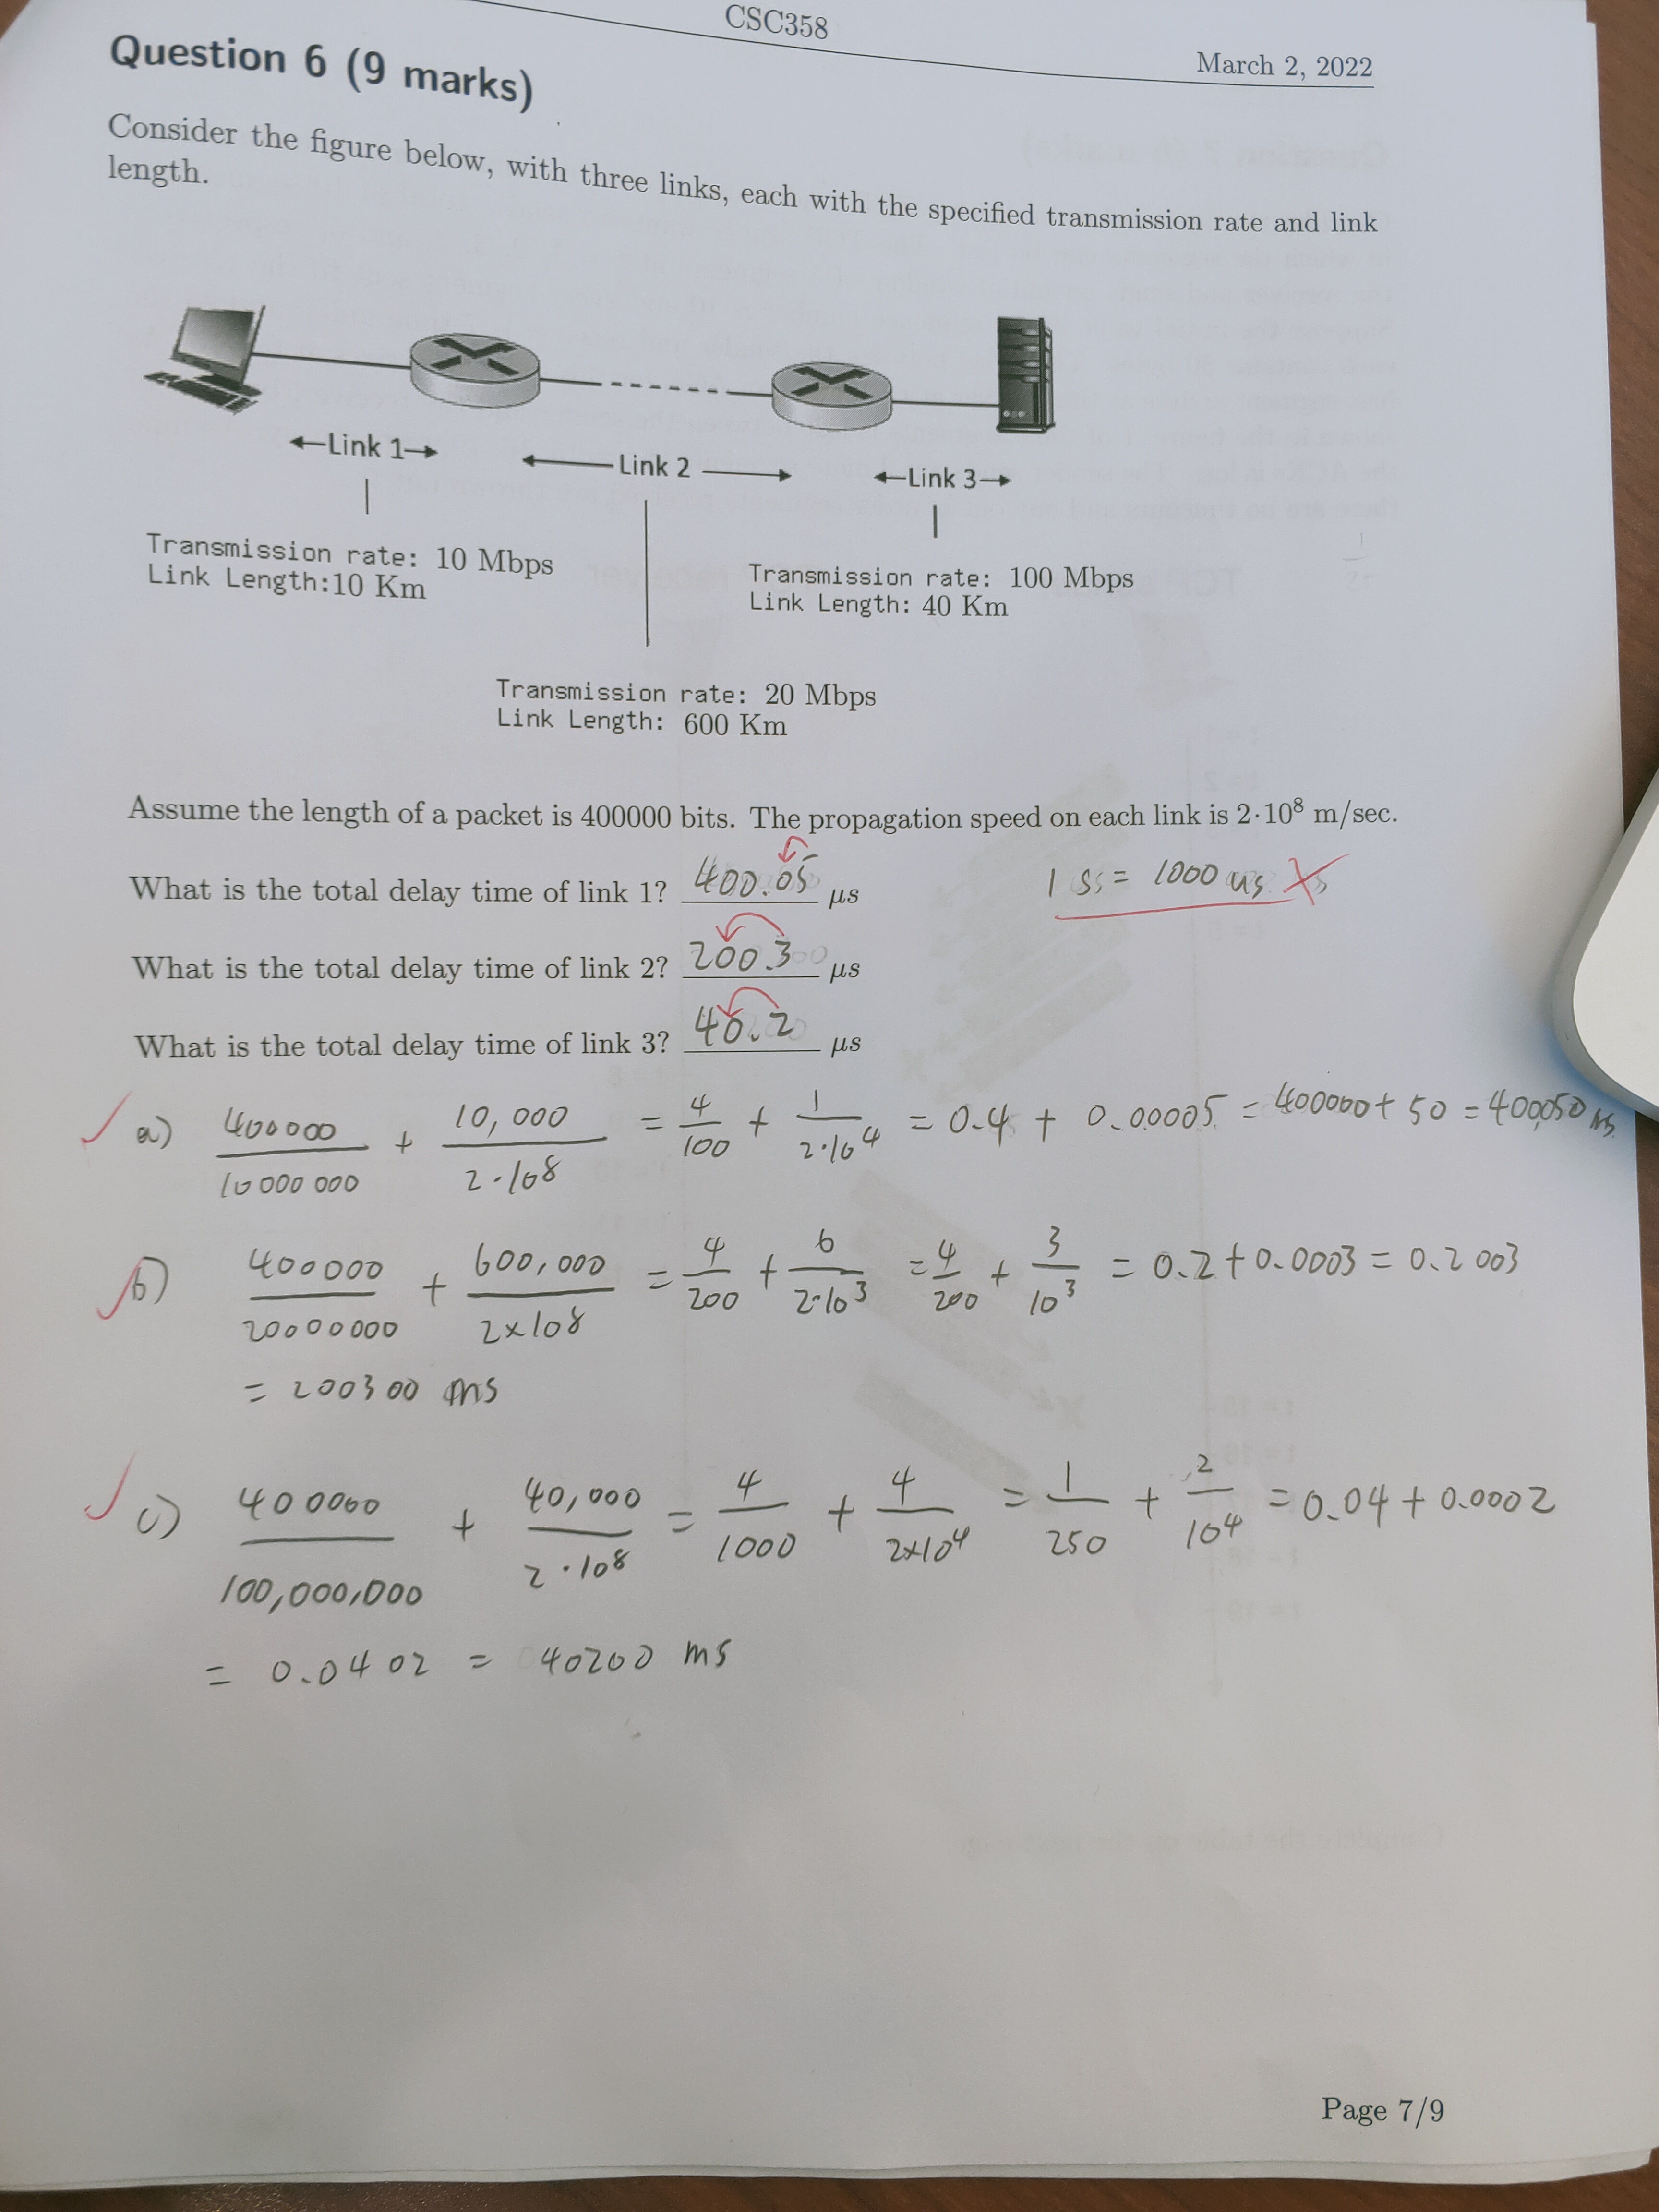 CSC358
March 2, 2022
Question 6 (9 marks)
Consider the figure below, with three links, each with the specified transmission rate and link
length.
←Link 1→
← Link 2 →
←Link 3→
Transmission rate: 10 Mbps
Link Length:10 Km
Transmission rate: 100 Mbps
Link Length: 40 Km
Transmission rate: 20 Mbps
Link Length: 600 Km
Assume the length of a packet is 400000 bits. The propagation speed on each link is 2·10⁸ m/sec.
What is the total delay time of link 1? 400.05 μs
1 s = 1000 us
What is the total delay time of link 2? 200.3 μs
What is the total delay time of link 3? 40.2 μs
a) 400000/10000000 + 10,000/2·10⁸ = 4/100 + 1/2·10⁴ = 0.4 + 0.00005 = 400000 + 50 = 400,050 ms
b) 400000/20000000 + 600,000/2×10⁸ = 4/200 + 6/2·10³ = 4/200 + 3/10³ = 0.2 + 0.0003 = 0.2003
= 200300 ms
c) 400000/100,000,000 + 40,000/2·10⁸ = 4/1000 + 4/2×10⁴ = 1/250 + 2/10⁴ = 0.04 + 0.0002
= 0.0402 = 40200 ms
Page 7/9